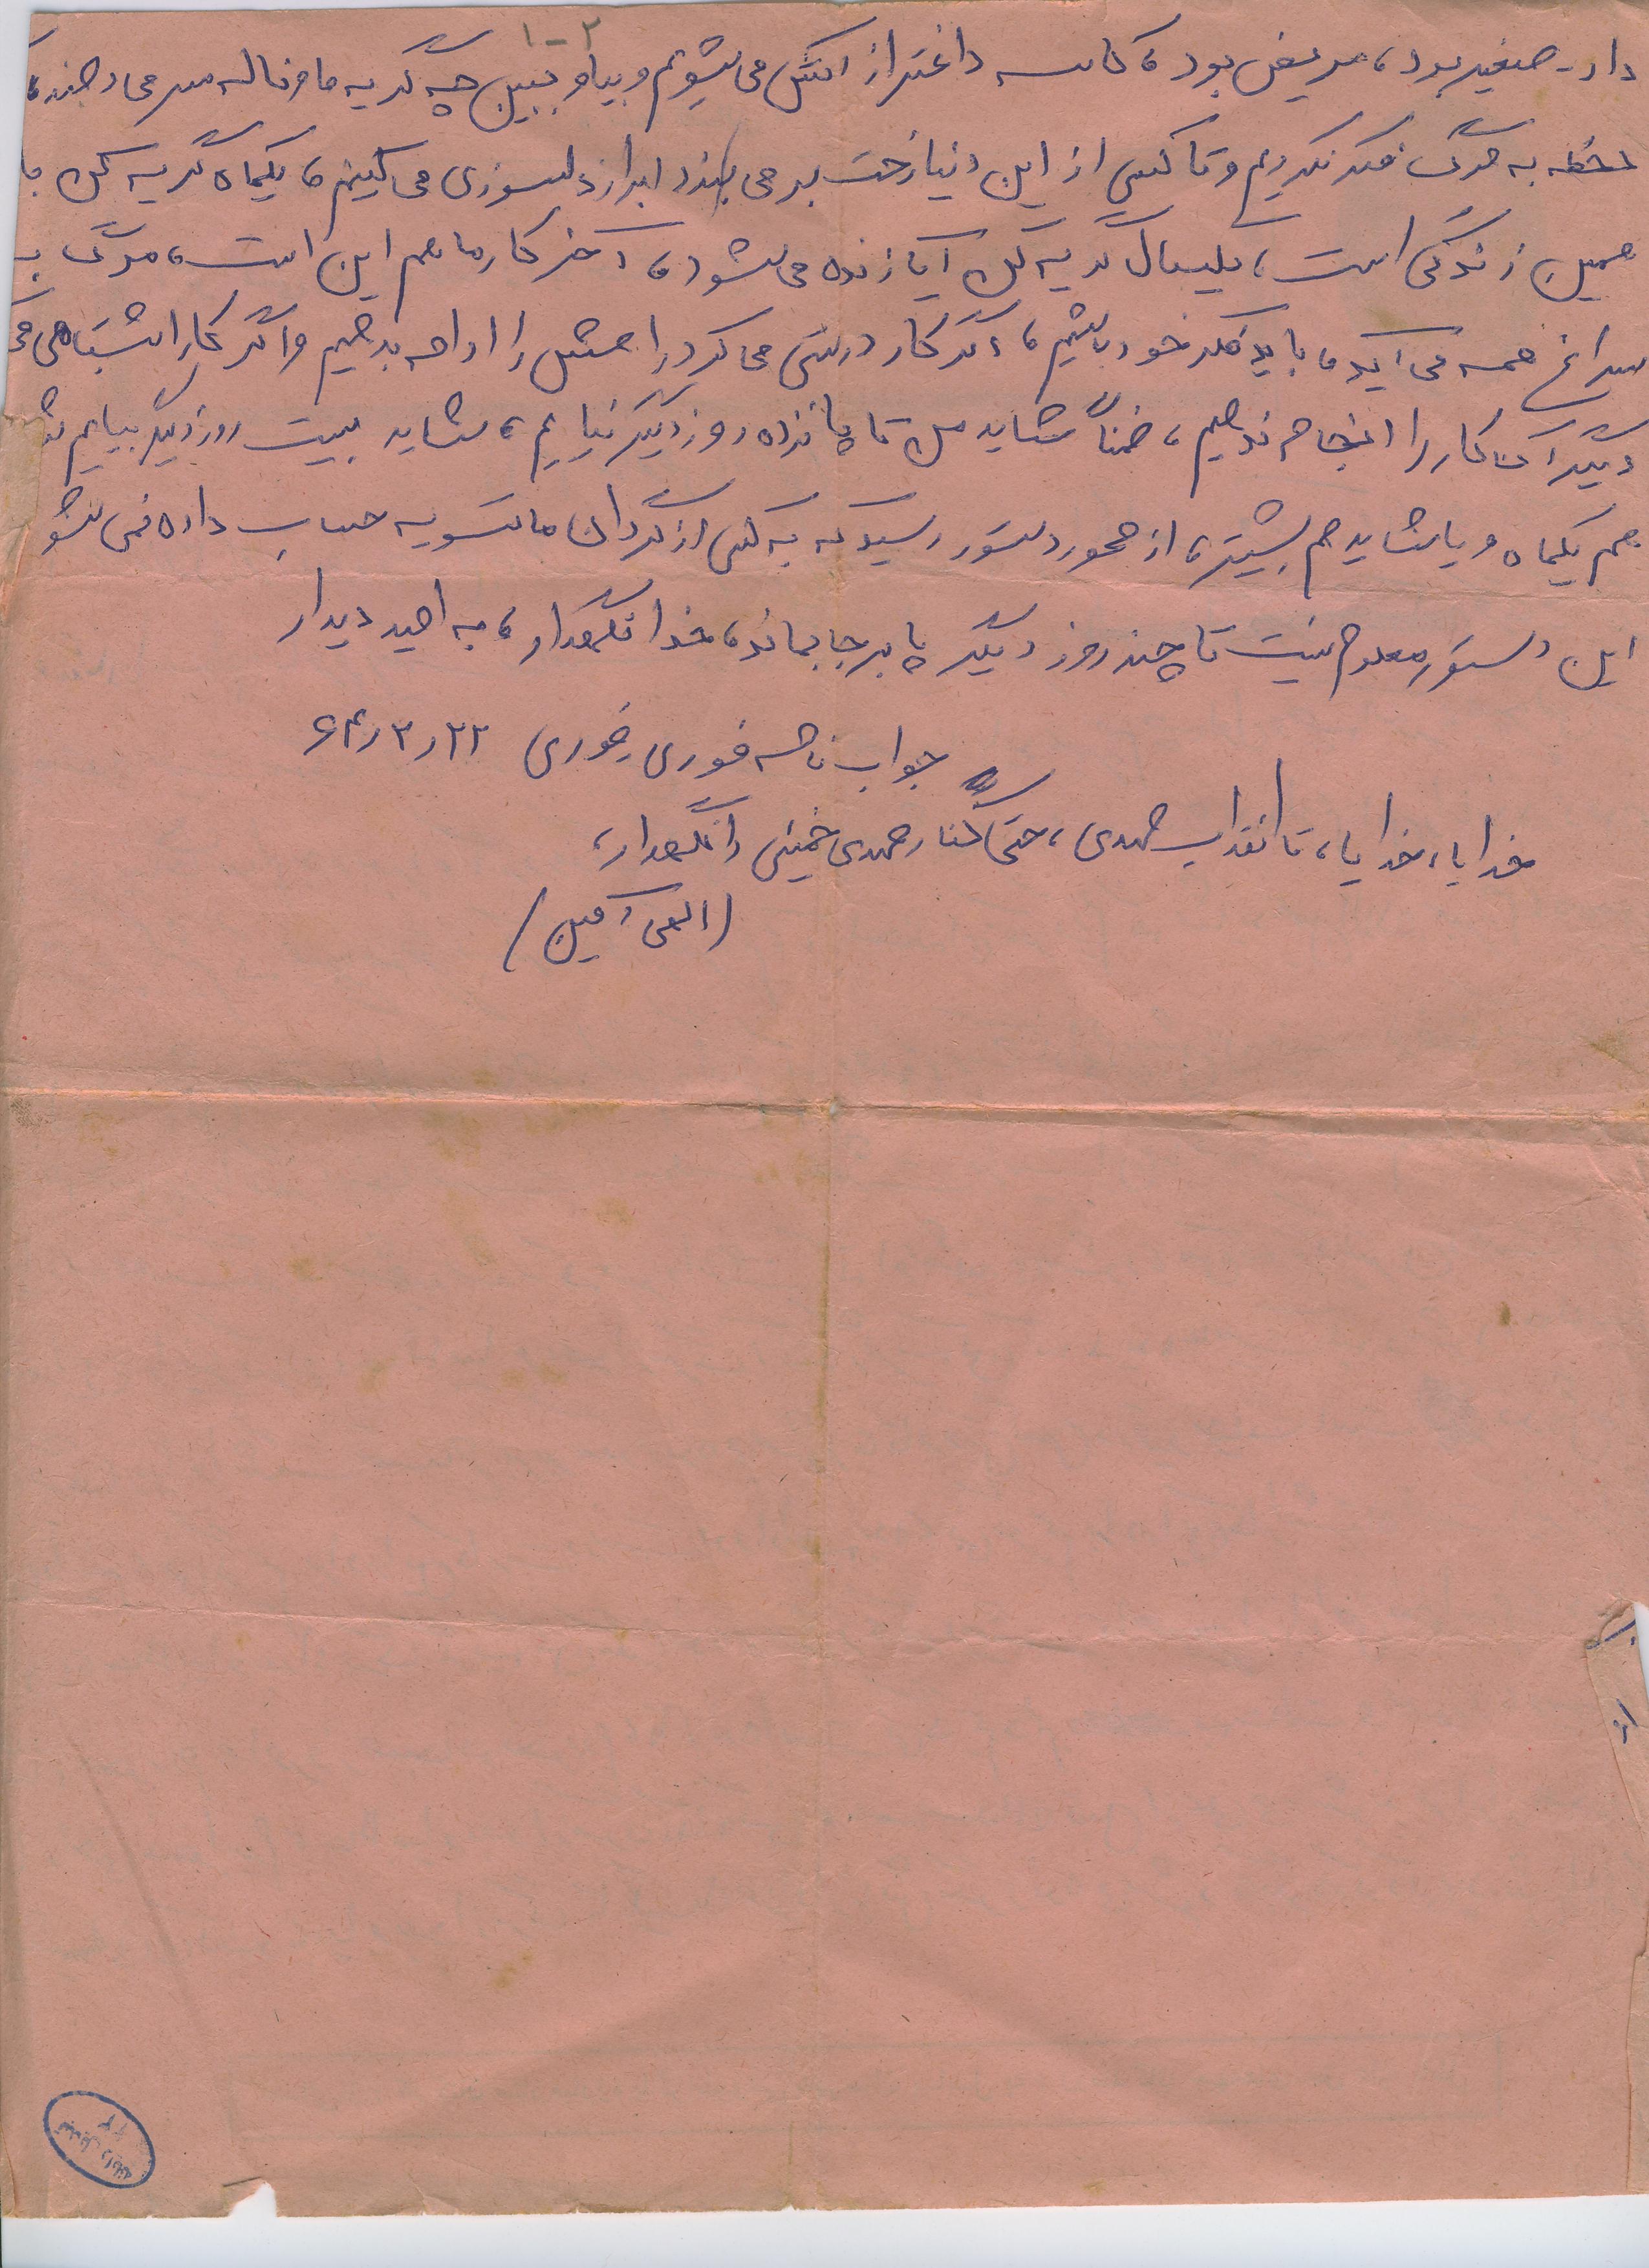 ۱-۲
دار-صغیر بود، مریض بود، کاسه داغتر از آتش می‌شویم و بیا و ببین چه گریه ها و ناله سر می‌دهند،
لحظه به مرگ فکر نکردیم و تا کسی از این دنیا رخت بر می‌بندد ابراز دلسوزی می‌کنیم، یکماه گریه کن با
همین زندگی است، یکسال گریه کن آیا زنده می‌شود، آخر کار ما هم این است، مرگ به
سراغ همه می‌آید، باید فکر خود باشیم، اگر کار درستی می‌کرد راهش را ادامه بدهیم و اگر کار اشتباهی می‌ک
دیگر آن کار را انجام ندهیم، ضمناً شاید من تا پانزده روز دیگر نیایم، شاید بیست روز دیگر بیایم شا
هم یکماه و یا شاید هم بیشتر، از محور دستور رسید که به کسی از گردان ما تسویه حساب داده نمی‌شو
این دستور معلوم نیست تا چند روز دیگر پا بر جا بماند، خدا نگهدار، به امید دیدار
جواب نامه فوری فوری ۶۴٫۳٫۲۲
خدایا، خدایا، تا انقلاب مهدی، حتی کنار مهدی خمینی را نگهدار،
(الهی آمین)